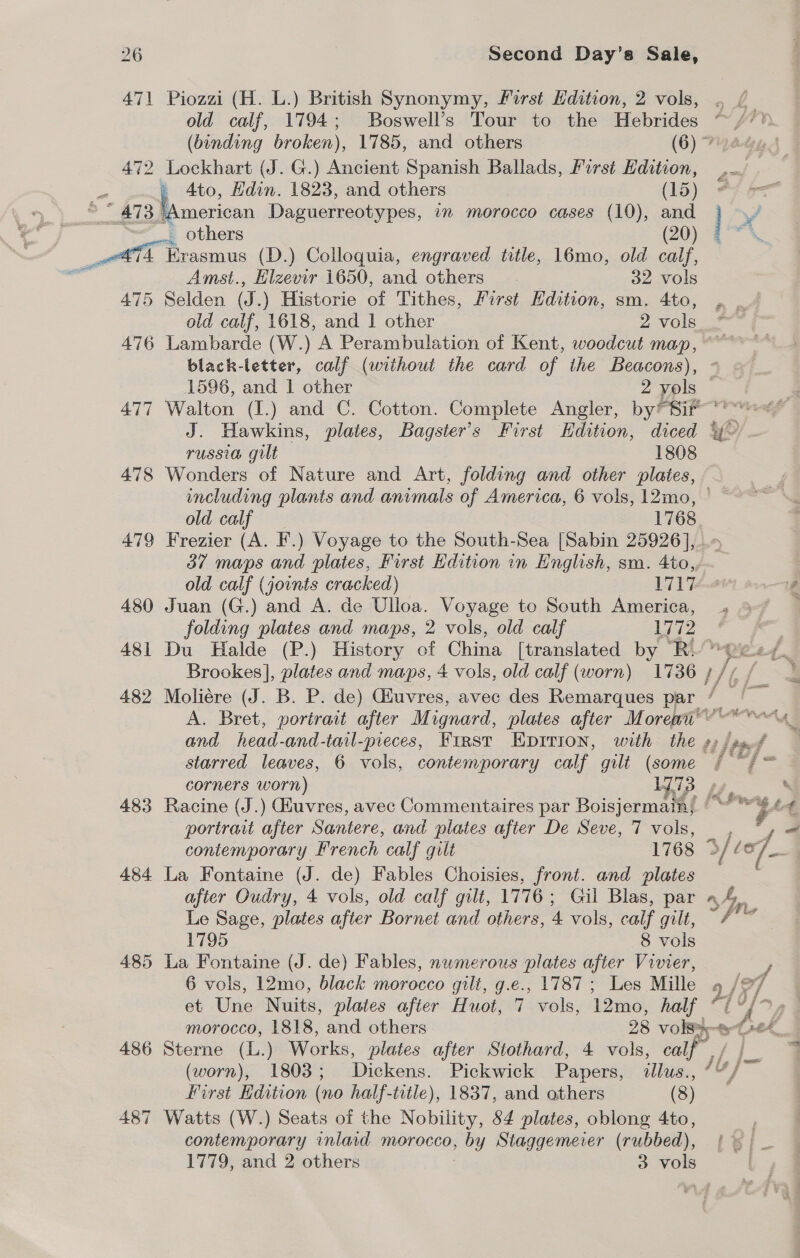 26 Second Day's Sale,
471 Piozzi (H. L.) British Synonymy, First Edition, 2 vols,
old calf, 1794; Boswell's Tour to the Hebrides
(binding broken), 1785, and others (6)
472 Lockhart (J. G.) Ancient Spanish Ballads, First Edition,
4to, Edin. 1823, and others (15)
473 American Daguerreotypes, in morocco cases (10), and
others (20)
474 Erasmus (D.) Colloquia, engraved title, 16mo, old calf,
Amst., Elzevir 1650, and others 32 vols
475 Selden (J.) Historie of Tithes, First Edition, sm. 4to,
old calf, 1618, and 1 other 2 vols
476 Lambarde (W.) A Perambulation of Kent, woodcut map,
black-letter, calf (without the card of the Beacons),
1596, and 1 other 2 vols
477 Walton (I.) and C. Cotton. Complete Angler, by Sir
J. Hawkins, plates, Bagster's First Edition, diced
russia gilt 1808
478 Wonders of Nature and Art, folding and other plates,
including plants and animals of America, 6 vols, 12mo,
old calf 1768
479 Frezier (A. F.) Voyage to the South-Sea [Sabin 25926],
37 maps and plates, First Edition in English, sm. 4to,
old calf (joints cracked) 1717
480 Juan (G.) and A. de Ulloa. Voyage to South America,
folding plates and maps, 2 vols, old calf 1772
481 Du Halde (P.) History of China [translated by R.
Brookes], plates and maps, 4 vols, old calf (worn) 1736
482 Moliére (J. B. P. de) Œuvres, avec des Remarques par
A. Bret, portrait after Mignard, plates after Moreau
and head-and-tail-pieces, First Edition, with the
starred leaves, 6 vols, contemporary calf gilt (some
corners worn) 1773
483 Racine (J.) Œuvres, avec Commentaires par Boisjermain,
portrait after Santere, and plates after De Seve, 7 vols,
contemporary French calf gilt 1768
484 La Fontaine (J. de) Fables Choisies, front. and plates
after Oudry, 4 vols, old calf gilt, 1776; Gil Blas, par
Le Sage, plates after Bornet and others, 4 vols, calf gilt,
1795 8 vols
485 La Fontaine (J. de) Fables, numerous plates after Vivier,
6 vols, 12mo, black morocco gilt, g.e., 1787; Les Mille
et Une Nuits, plates after Huot, 7 vols, 12mo, half
morocco, 1818, and others 28 vols
486 Sterne (L.) Works, plates after Stothard, 4 vols, calf
(worn), 1803; Dickens. Pickwick Papers, illus.,
First Edition (no half-title), 1837, and others (8)
487 Watts (W.) Seats of the Nobility, 84 plates, oblong 4to,
contemporary inlaid morocco, by Staggemeier (rubbed),
1779, and 2 others 3 vols